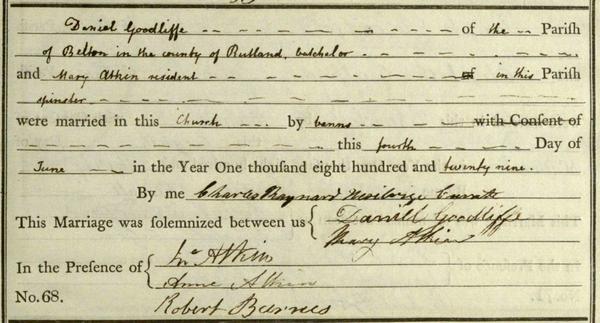 Daniel Goodliffe of the Parish
of Belton in the county of Rutland, batchelor
and Mary Atkin resident of in this Parish
spinster
were married in this Church by banns with Consent of
this fourth Day of
June in the Year One thouſand eight hundred and twenty nine.
By me Charles Maynard
This Marriage was ſolemnized between us { Daniel Goodliffe
Mary Atkin
In the Preſence of { Jno Atkin
Anne Atkin
No. 68. Robert Barnes